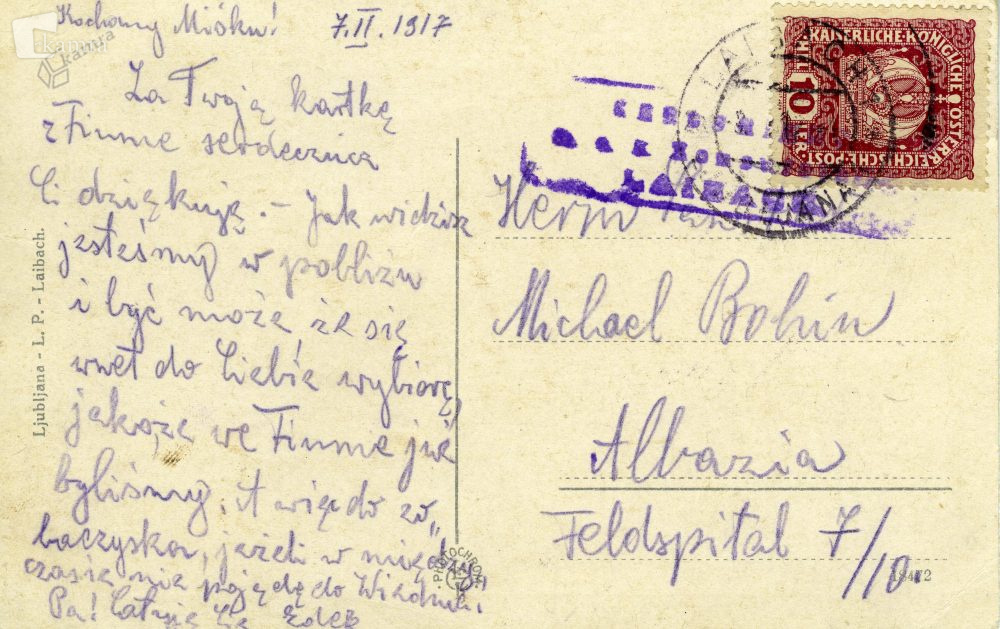 Kochany Miśku! 7.II.1917
Za Twoją kartkę
z Fiume serdecznie
Ci dziękuję. - Jak widzisz
jesteśmy w pobliżu
i być może że się
wnet do Ciebie wybiorę,
jakoże we Fiume już
byliśmy. A więc do zo„
baczyska, jeżeli w między
czasie nie pojadę do Wiednia.
Pa! Całuję Cię Edek
Ljubljana - L. P. - Laibach.
KAISERLICHE KÖNIGLICHE ÖSTERREICHISCHE POST
10 HELLER
LAIBACH
LJUBLJANA
LAIBACH
Herrn
Michael Bohin
Abbazia
Feldspital 7/10
PHOTOCHROM
18472
kamra